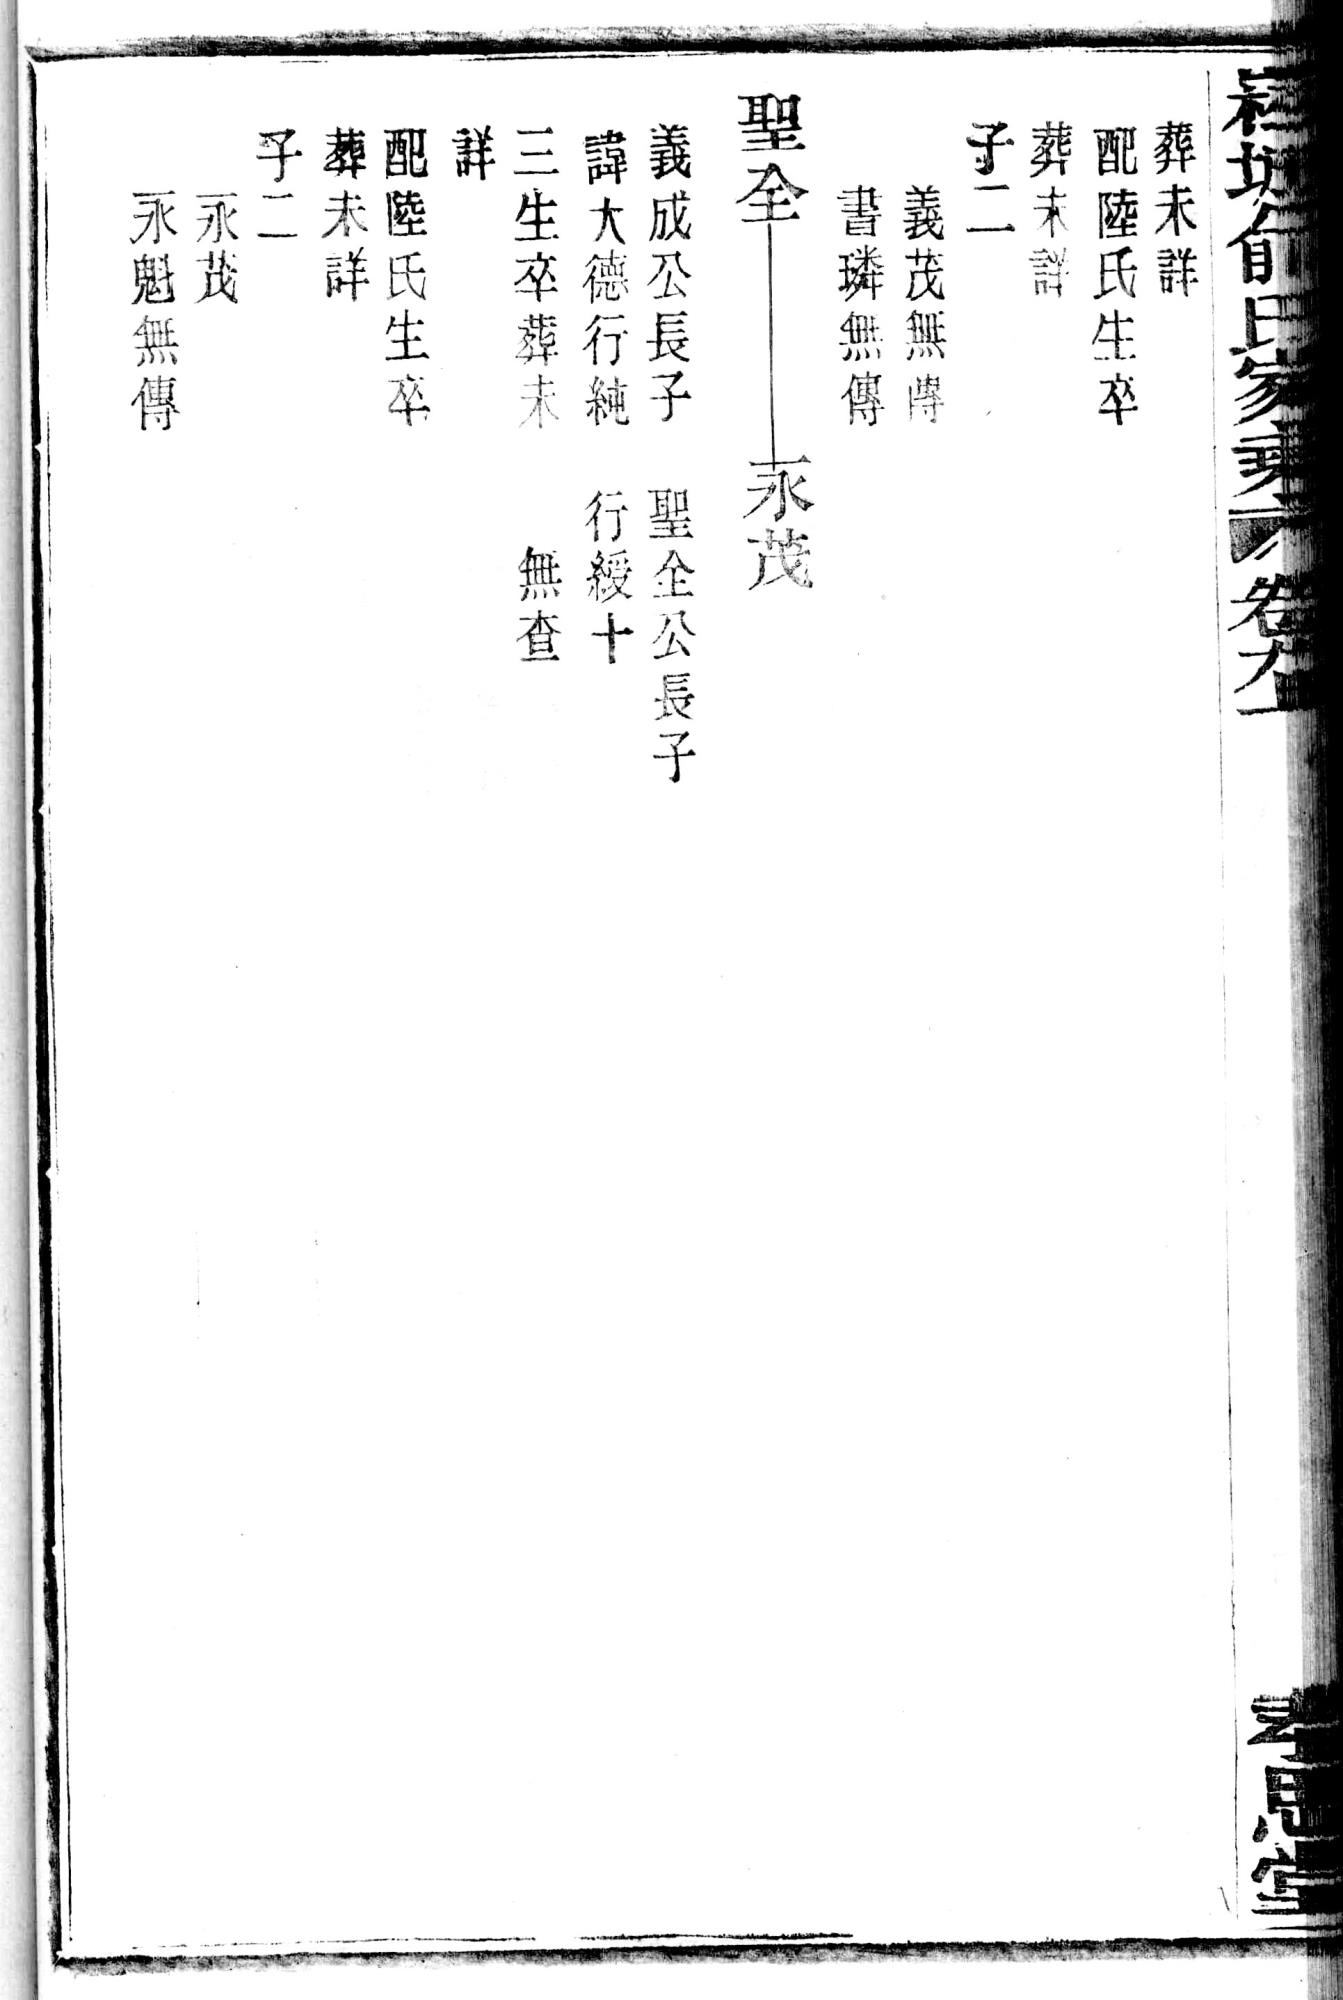 葬未詳
配陸氏生卒
葬未詳
子二
義茂無傳
書璘無傳
聖全
永茂
義成公長子
諱大德行純
三生卒葬未
詳
配陸氏生卒
葬未詳
子二
永茂
永魁無傳
聖全公長子
行綬十
無查
氏家乘
卷
思堂